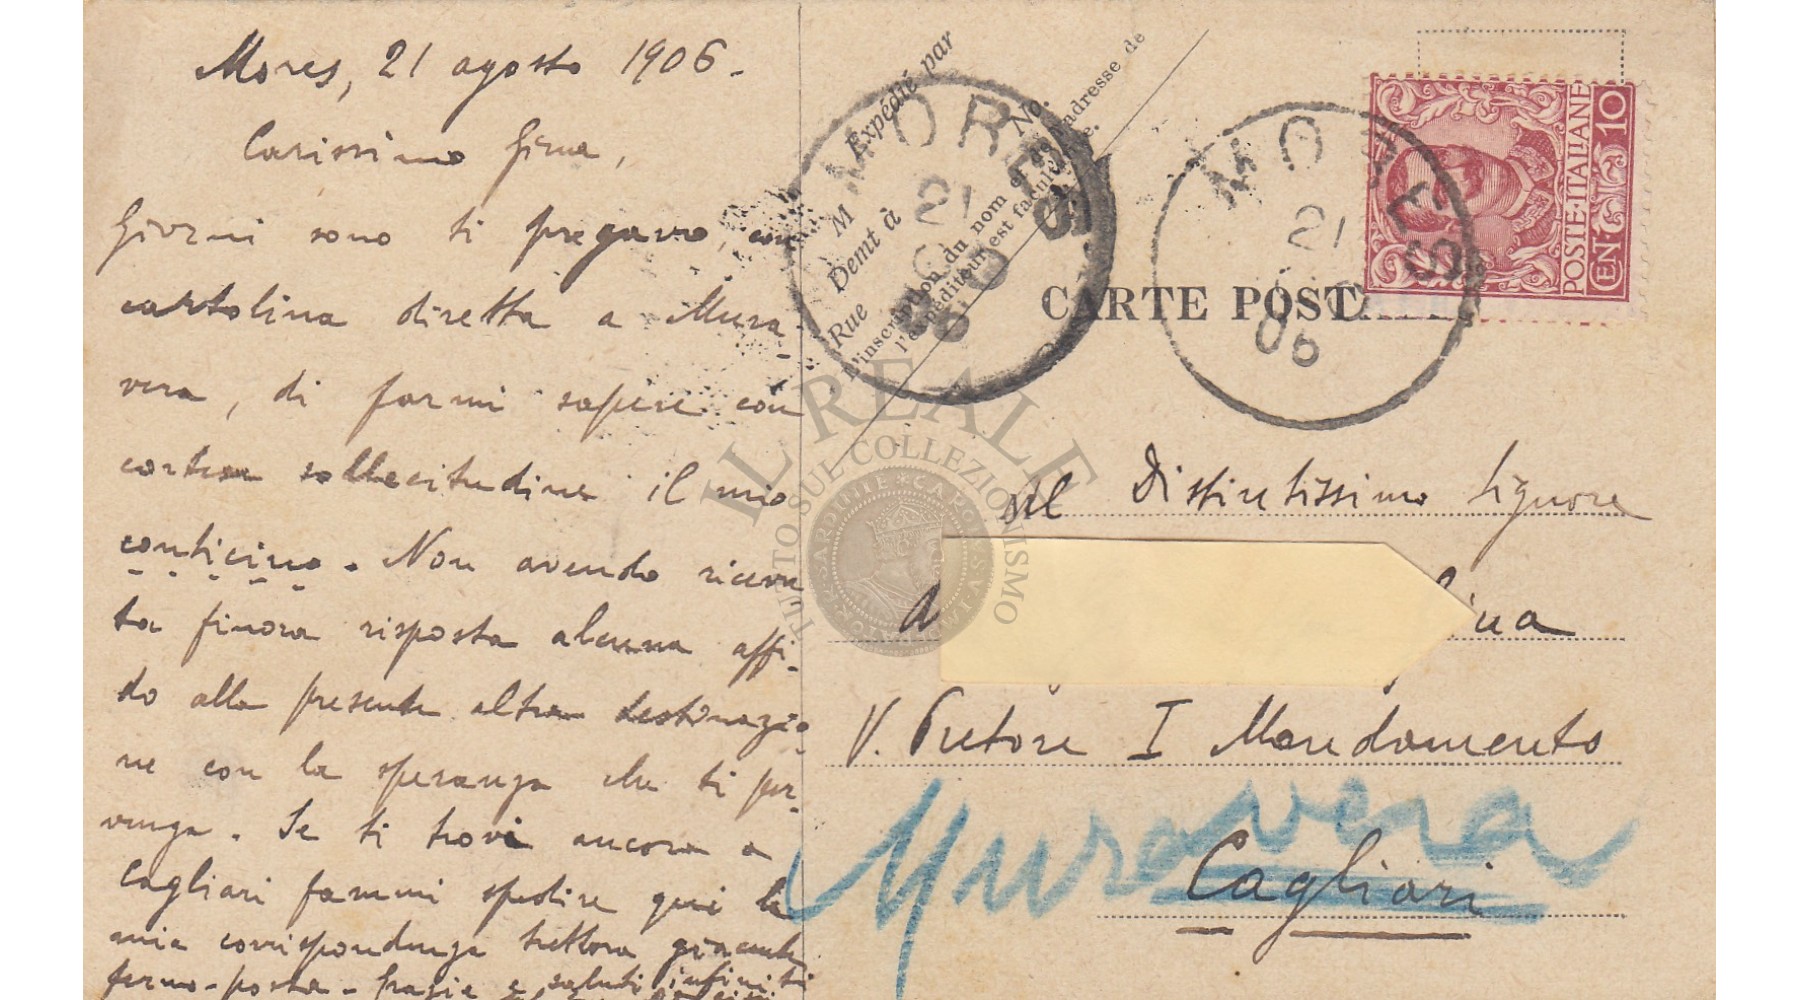 Mores, 21 agosto 1906.
Carissimo Gina,
Giorni sono ti pregavo, con
cartolina diretta a Mura-
vera, di farmi sapere con
cortese sollecitudine il mio
conticino. Non avendo ricevu
ta finora risposta alcuna affi-
do alla presente altra destinazio-
ne con la speranza che ti per-
venga. Se ti trovi ancora a
Cagliari fammi spedire qui la
mia corrispondenza tuttora giacente
fermo-posta - Grazie e saluti infiniti
Expédié par
M
Demt à
Rue
No.
L'inscription du nom et de l'adresse de
l'expéditeur est facultative.
MORES
21
06
MORES
21
06
CARTE POST
POSTE·ITALIANE
CEN 10
Al Distintissimo Signore
V. Pretore I Mandamento
Muravera
Cagliari
IL REALE
TUTTO SUL COLLEZIONISMO